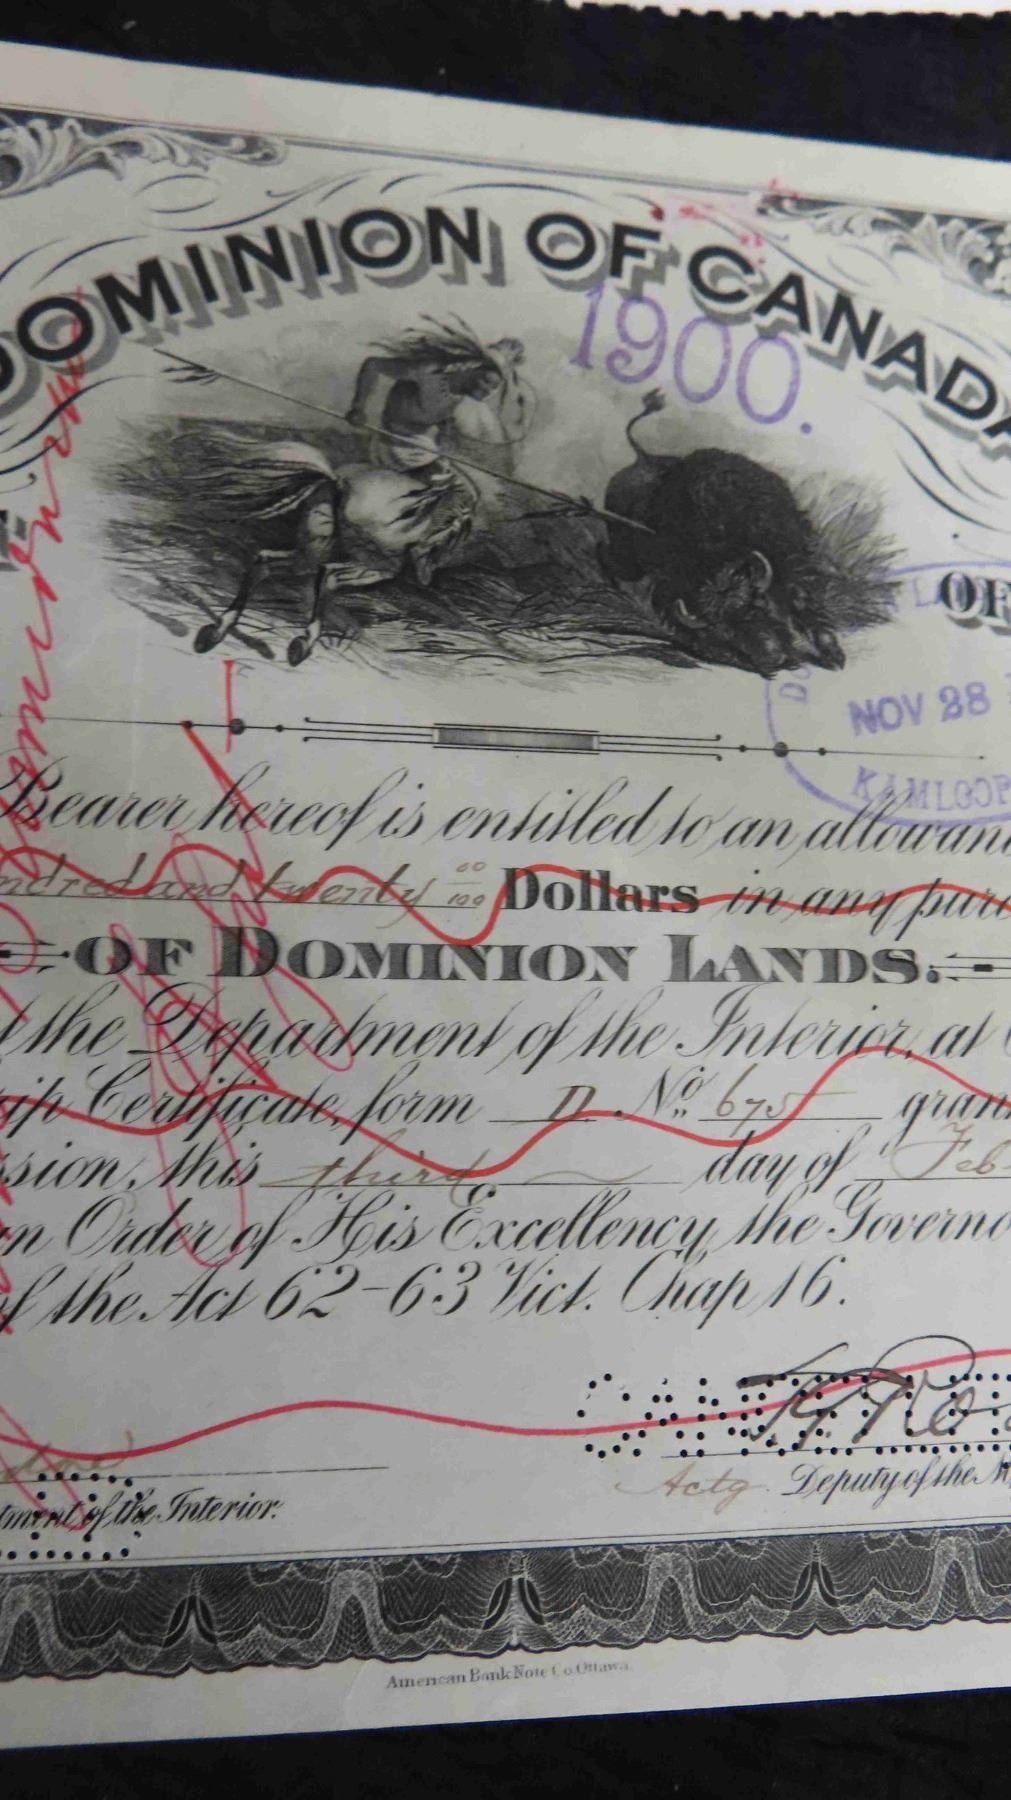 DOMINION OF CANADA
1900.
OF
NOV 28
KAMLOOP
Bearer hereof is entitled to an allowan
ndred and twenty 00/100 Dollars in any purc
OF DOMINION LANDS.
t the Department of the Interior, at
ip Certificate, form D. No. 675 gran
sion, this third day of Feb
n Order of His Excellency the Governo
of the Act 62-63 Vict. Chap 16.
Actg. Deputy of the M
tment of the Interior.
American Bank Note Co. Ottawa.